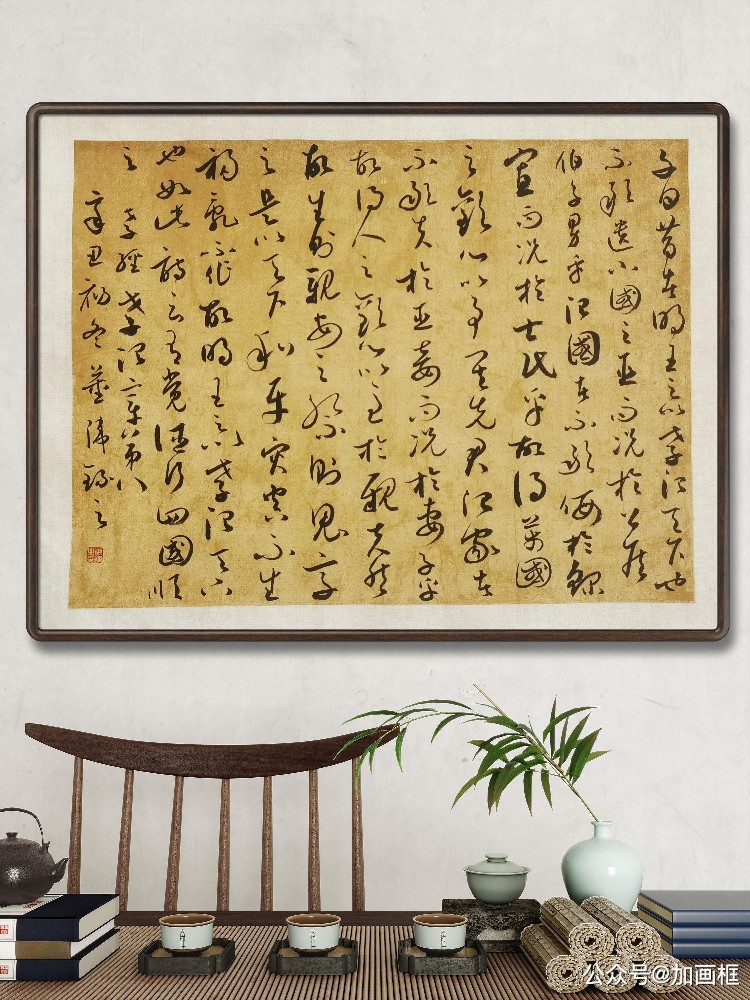 子曰昔者明王之以孝治天下也
不敢遺小國之臣而況於公侯
伯子男乎治國者不敢侮於鰥
寡而況於士民乎故得萬國
之歡心以事其先君治家者
不敢失於臣妾而況於妻子乎
故得人之歡心以於親夫然
故生則親安之祭則鬼享
之是以天下和平災害不生
禍亂不作故明王之以孝治天下
也如此詩云有覺德行四國順
之 孝經孝治章第八
辛丑初冬
公众号@加画框